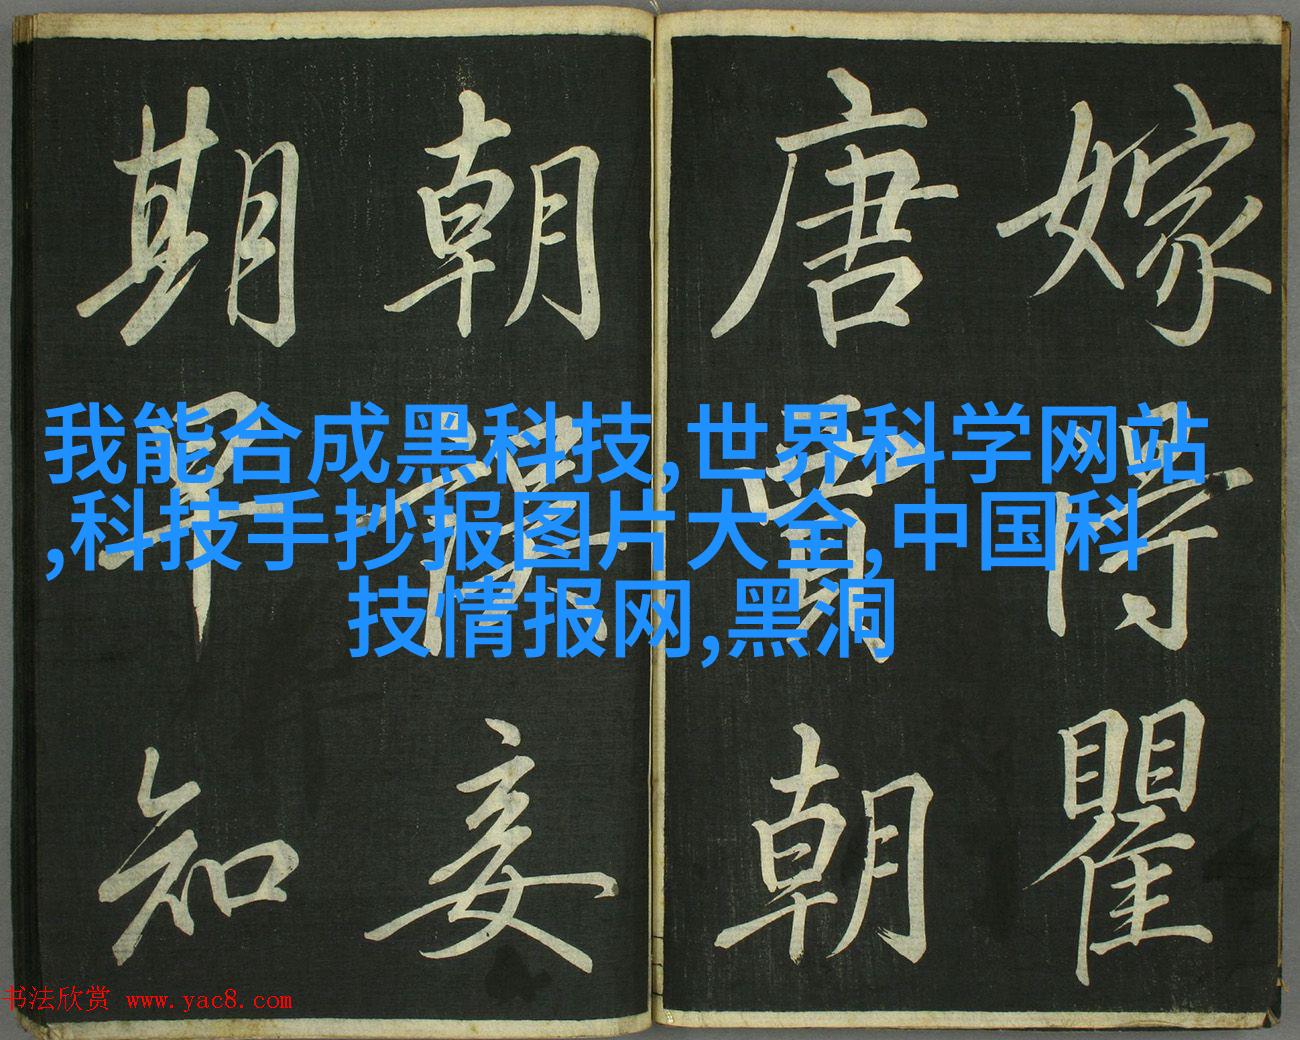 嫁得瞿
唐賈朝
朝誤妾
期早知
我能合成黑科技,世界科学网站
,科技手抄报图片大全,中国科
技情报网,黑洞
书法欣赏 www.yac8.com